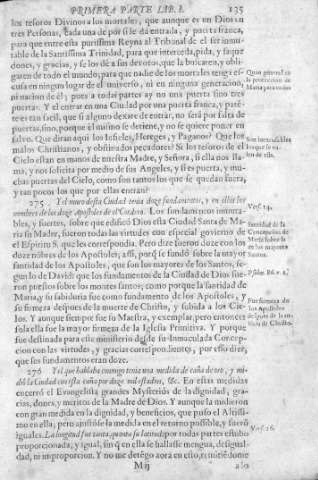 PRIMERA PARTE LIB. I. 135
los tesoros Divinos a los mortales, que aunque es un Dios en
tres Personas, cada una de por si le da entrada, y puerta franca,
para que entre esta purissima Reyna al Tribunal de el ser inmu-
table de la Santissima Trinidad, para que interceda, pida, y saque
dones, y gracias, y se los dè a sus devotos, que la buscaren, y obli-
garen de todo el mundo; para que nadie de los mortales tenga es-
cusa en ningun lugar de el universo, ni en ninguna generacion,
ni nacion de èl; pues a todas partes ay no una puerta sino tres
puertas: Y el entrar en una Ciudad por una puerta franca, y paté-
te es tan facil, que si alguno dexare de entrar, no serà por falta de
puertas, sino, porque él mismo se detiene, y no se quiere poner en
salvo. Que diran aqui los Infieles, Hereges, y Paganos? Que los
malos Christianos, y obstinados pecadores? Si los tesoros de el
Cielo estan en manos de nuestra Madre, y Señora, si ella nos lla-
ma, y nos solicita por medio de sus Angeles, y si es puerta, y mu-
chas puertas del Cielo, como son tantos los que se quedan fuera,
y tan pocos los que por ellas entran?
275 Y el muro de esta Ciudad tenia doze fundamentos, y en ellos los
nombres de los doze Apostoles de el Cordero. Los fundamentos inmuta-
bles, y fuertes, sobre que edificò Dios esta Ciudad Santa de Ma-
ria su Madre, fueron todas las virtudes con especial govierno de
el Espiritu S. que les correspondia. Pero dize fueron doze con los
doze nõbres de los Apostoles; assi, porq́ se fundò sobre la mayor
santidad de los Apostoles, que son los mayores de los Santos, se-
gun lo de David: que los fundamentos de la Ciudad de Dios fue-
ron puestos sobre los montes santos; como porque la santidad de
Maria, y su sabiduria fue como fundamento de los Apostoles, y
su firmeza despues de la muerte de Christo, y subida a los Cie-
los. Y aunque siempre fue su Maestra, y exemplar, pero entonces
sola ella fue la mayor firmeza de la Iglesia Primitiva. Y porque
fue destinada para este ministerio desde su Inmaculada Concep-
cion con las virtudes, y gracias correspondientes, por esso dize,
que sus fundamentos eran doze.
276 Y el que hablaba conmigo tenia una medida de caña de oro, y mi-
diò la Ciudad con esta caña por doze mil estadios, &c. En estas medidas
encerrò el Evangelista grandes Mysterios de la dignidad, gra-
cias, dones, y meritos de la Madre de Dios. Y aunque la midieron
con gran medida en la dignidad, y beneficios, que puso el Altissi-
mo en ella; pero ajustòse la medida en el retorno possible, y fueró
iguales. La longitud fue tanta, quanta su latitud, por todas partes estubo
proporcionada, y igual, sin q́ en ella se hallasse mengua, desigual-
dad, ni improporcion. Y no me detēgo aora en esto, remitiēdome
M ij a lo
Vers. 14.
Santidad de la
Psalm. 86. v. 1.
Vers. 16.